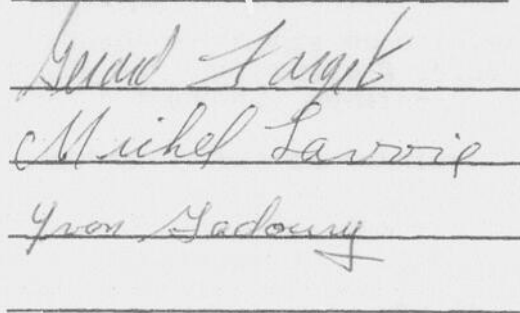 Gerard Forget
Michel Lavoie
Yvon Gadoury